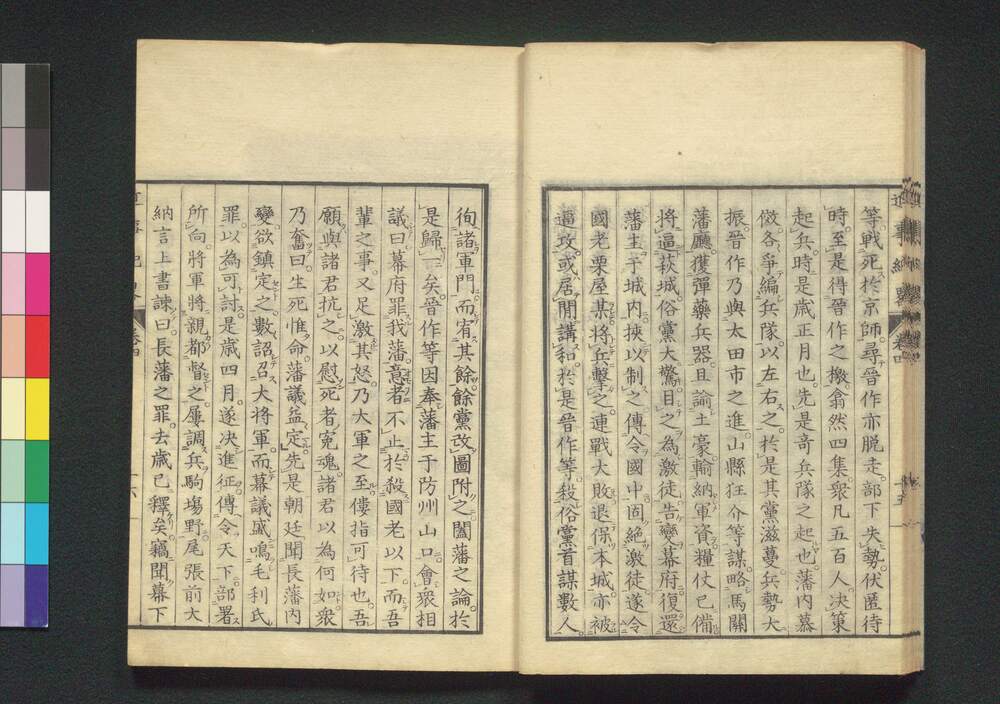 等戰死於京師尋晉作亦脱走部下失勢伏匿待
時至是得晉作之檄翕然四集衆凡五百人決策
起兵時是歳正月也先是奇兵隊之起也藩内慕
傚各爭編兵隊以左右之於是其黨滋蔓兵勢大
振晉作乃與太田市之進山縣狂介等謀略馬關
藩廳獲彈藥兵器且諭土豪輸納軍資糧仗已備
將逼萩城俗黨大驚目之為激徒告變幕府復還
藩主于城内挾以制之傳令國中固絶激徒遂令
國老栗屋某將兵擊之連戰大敗退保本城亦被
逼攻或居閒講和於是晉作等殺俗黨首謀數人
徇諸軍門而宥其餘餘黨改圖附之闔藩之論於
是歸一矣晉作等因奉藩主于防州山口會衆相
議曰幕府罪我藩意者不止於殺國老以下而吾
輩之事又足激其怒乃大軍之至僂指可待也吾
願與諸君抗之以慰死者寃魂諸君以為何如衆
乃奮曰生死惟命藩議益定先是朝廷聞長藩内
變欲鎮定之數詔召大將軍而幕議盛鳴毛利氏
罪以為可討是歳四月遂決進征傳令天下部署
所向將軍將親都督之屢調兵駒塲野尾張前大
納言上書諫曰長藩之罪去歳已釋矣竊聞幕下